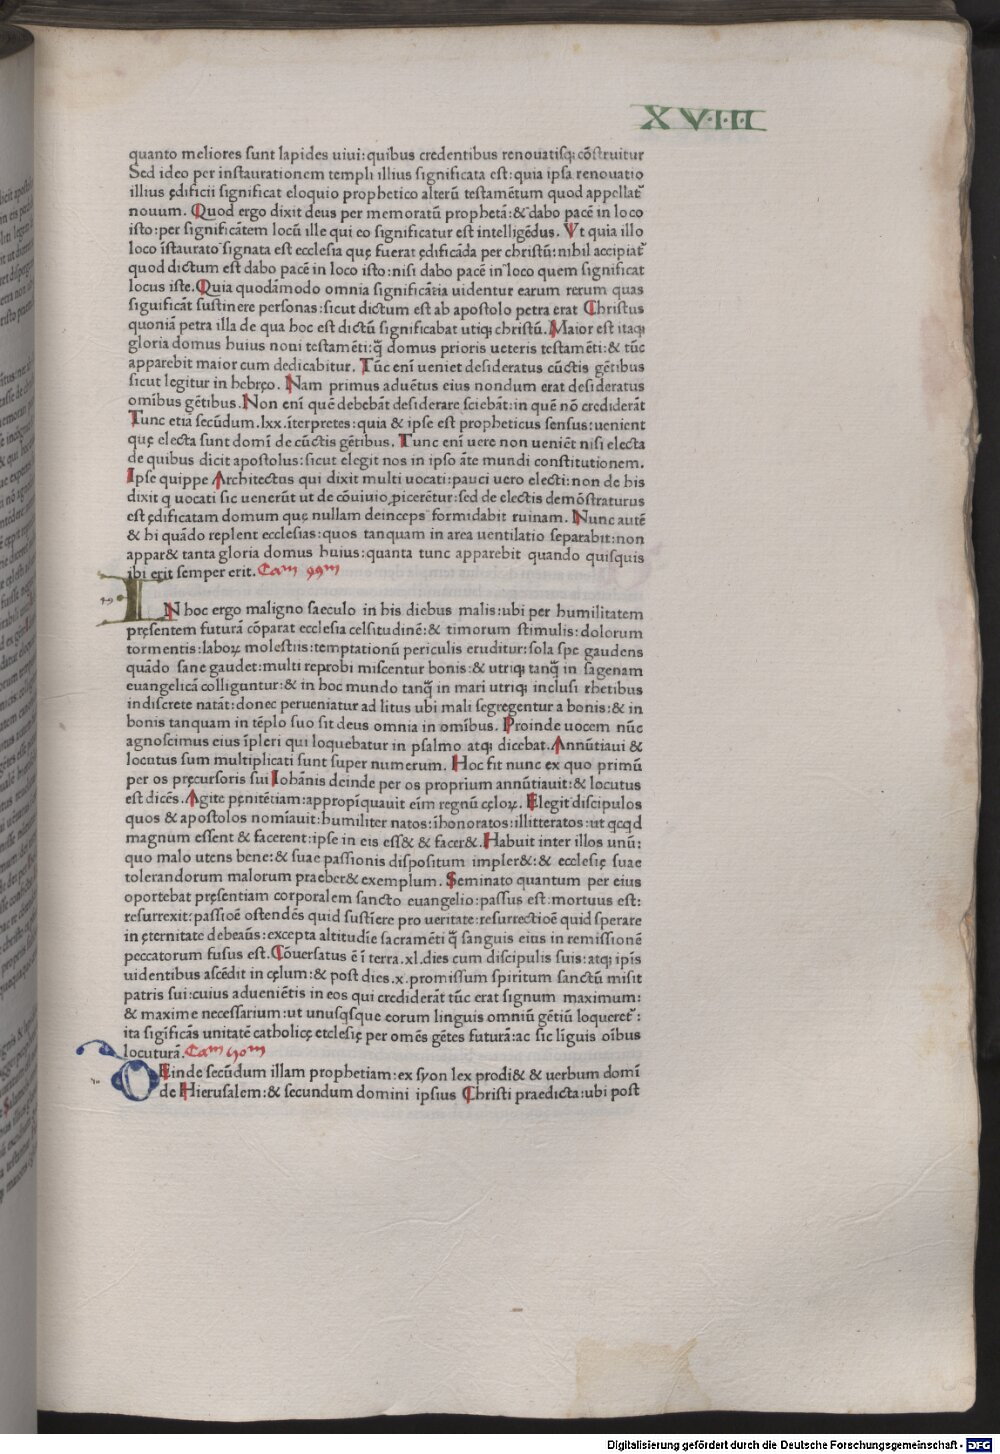 XVIII
quanto meliores sunt lapides uiui:quibus credentibus renouatisq; cōstruitur
Sed ideo per instaurationem templi illius significata est:quia ipsa renouatio
illius ędificii significat eloquio prophetico alterū testamētum quod appellat̄
nouum. Quod ergo dixit deus per memoratū prophetā:& dabo pacē in loco
isto:per significātem locū ille qui eo significatur est intelligēdus. Vt quia illo
loco īstaurato signata est ecclesia quę fuerat ędificāda per christū:nihil accipiat̄
quod dictum est dabo pacē in loco isto:nisi dabo pacē in loco quem significat
locus iste. Quia quodāmodo omnia significātia uidentur earum rerum quas
siguificāt sustinere personas:sicut dictum est ab apostolo petra erat Christus
quoniā petra illa de qua hoc est dictū significabat utiq; christū. Maior est itaq;
gloria domus huius noui testamēti:q̄ domus prioris ueteris testamēti:& tūc
apparebit maior cum dedicabitur. Tūc enī ueniet desideratus cūctis gētibus
sicut legitur in hebręo. Nam primus aduētus eius nondum erat desideratus
omībus gētibus. Non enī quē debebāt desiderare sciebāt:in quē nō crediderāt
Tunc etiā secūdum .lxx. īterpretes:quia & ipse est propheticus sensus:uenient
quę electa sunt domī de cūctis gētibus. Tunc enī uere non ueniēt nisi electa
de quibus dicit apostolus:sicut elegit nos in ipso āte mundi constitutionem.
Ipse quippe Architectus qui dixit multi uocati:pauci uero electi:non de his
dixit q uocati sic uenerūt ut de cōuiuio ꝓicerētur:sed de electis demōstraturus
est ędificatam domum quę nullam deinceps formidabit ruinam. Nunc autē
& hi quādo replent ecclesias:quos tanquam in area uentilatio separabit:non
appar& tanta gloria domus huius:quanta tunc apparebit quando quisquis
ibi erit semper erit. Cam 49m
49
IN hoc ergo maligno saeculo in his diebus malis:ubi per humilitatem
pręsentem futurā cōparat ecclesia celsitudinē:& timorum stimulis:dolorum
tormentis:laboꝝ molestiis:temptationū periculis eruditur:sola spe gaudens
quādo sane gaudet:multi reprobi miscentur bonis:& utriq; tanq̄ in sagenam
euangelicā colliguntur:& in hoc mundo tanq̄ in mari utriq; inclusi rhetibus
indiscrete natāt:donec perueniatur ad litus ubi mali segregentur a bonis:& in
bonis tanquam in tēplo suo sit deus omnia in omībus. Proinde uocem nūc
agnoscimus eius īpleri qui loquebatur in psalmo atq; dicebat. Annūtiaui &
locutus sum multiplicati sunt super numerum. Hoc fit nunc ex quo primū
per os pręcursoris sui Iohānis deinde per os proprium annūtiauit:& locutus
est dicēs. Agite pęnitētiam:appropīquauit eīm regnū cęloꝝ. Elegit discipulos
quos & apostolos nomīauit:humiliter natos:īhonoratos:illitteratos:ut qcqd
magnum essent & facerent:ipse in eis ess& & facer&. Habuit inter illos unū:
quo malo utens bene:& suae passionis dispositum impler&:& ecclesię suae
tolerandorum malorum praeber& exemplum. Seminato quantum per eius
oportebat pręsentiam corporalem sancto euangelio:passus est:mortuus est:
resurrexit:passioē ostendēs quid sustīere pro ueritate:resurrectioē quid sperare
in ęternitate debeaūs:excepta altitudīe sacramēti q̄ sanguis eius in remissionē
peccatorum fusus est. Cōuersatus ē ī terra .xl. dies cum discipulis suis:atq; ipīs
uidentibus ascēdit in cęlum:& post dies .x. promissum spiritum sanctū misit
patris sui:cuius adueniētis in eos qui crediderāt tūc erat signum maximum:
& maxime necessarium:ut unusqsque eorum linguis omniū gētiū loqueret̄:
ita sigīficās unitatē catholicę etclesię per omēs gētes futurā:ac sic līguis oībus
locuturā. Cam 50m
50
DEinde secūdum illam prophetiam:ex syon lex prodi& & uerbum domī
de Hierusalem:& secundum domini ipsius Christi praedicta:ubi post
Digitalisierung gefördert durch die Deutsche Forschungsgemeinschaft - DFG